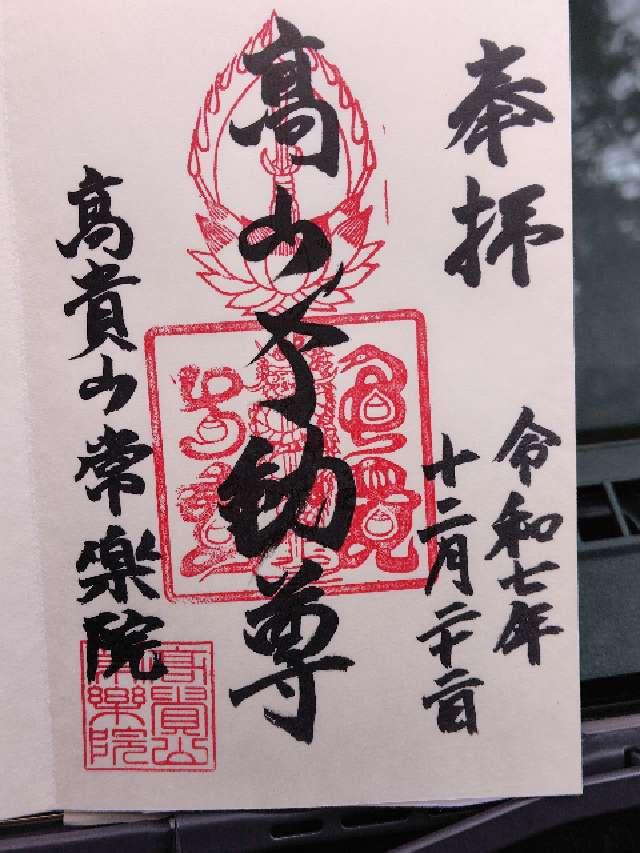 奉拝
令和七年
十二月二十二日
高山不動尊
高貴山常楽院
高貴山
常樂院